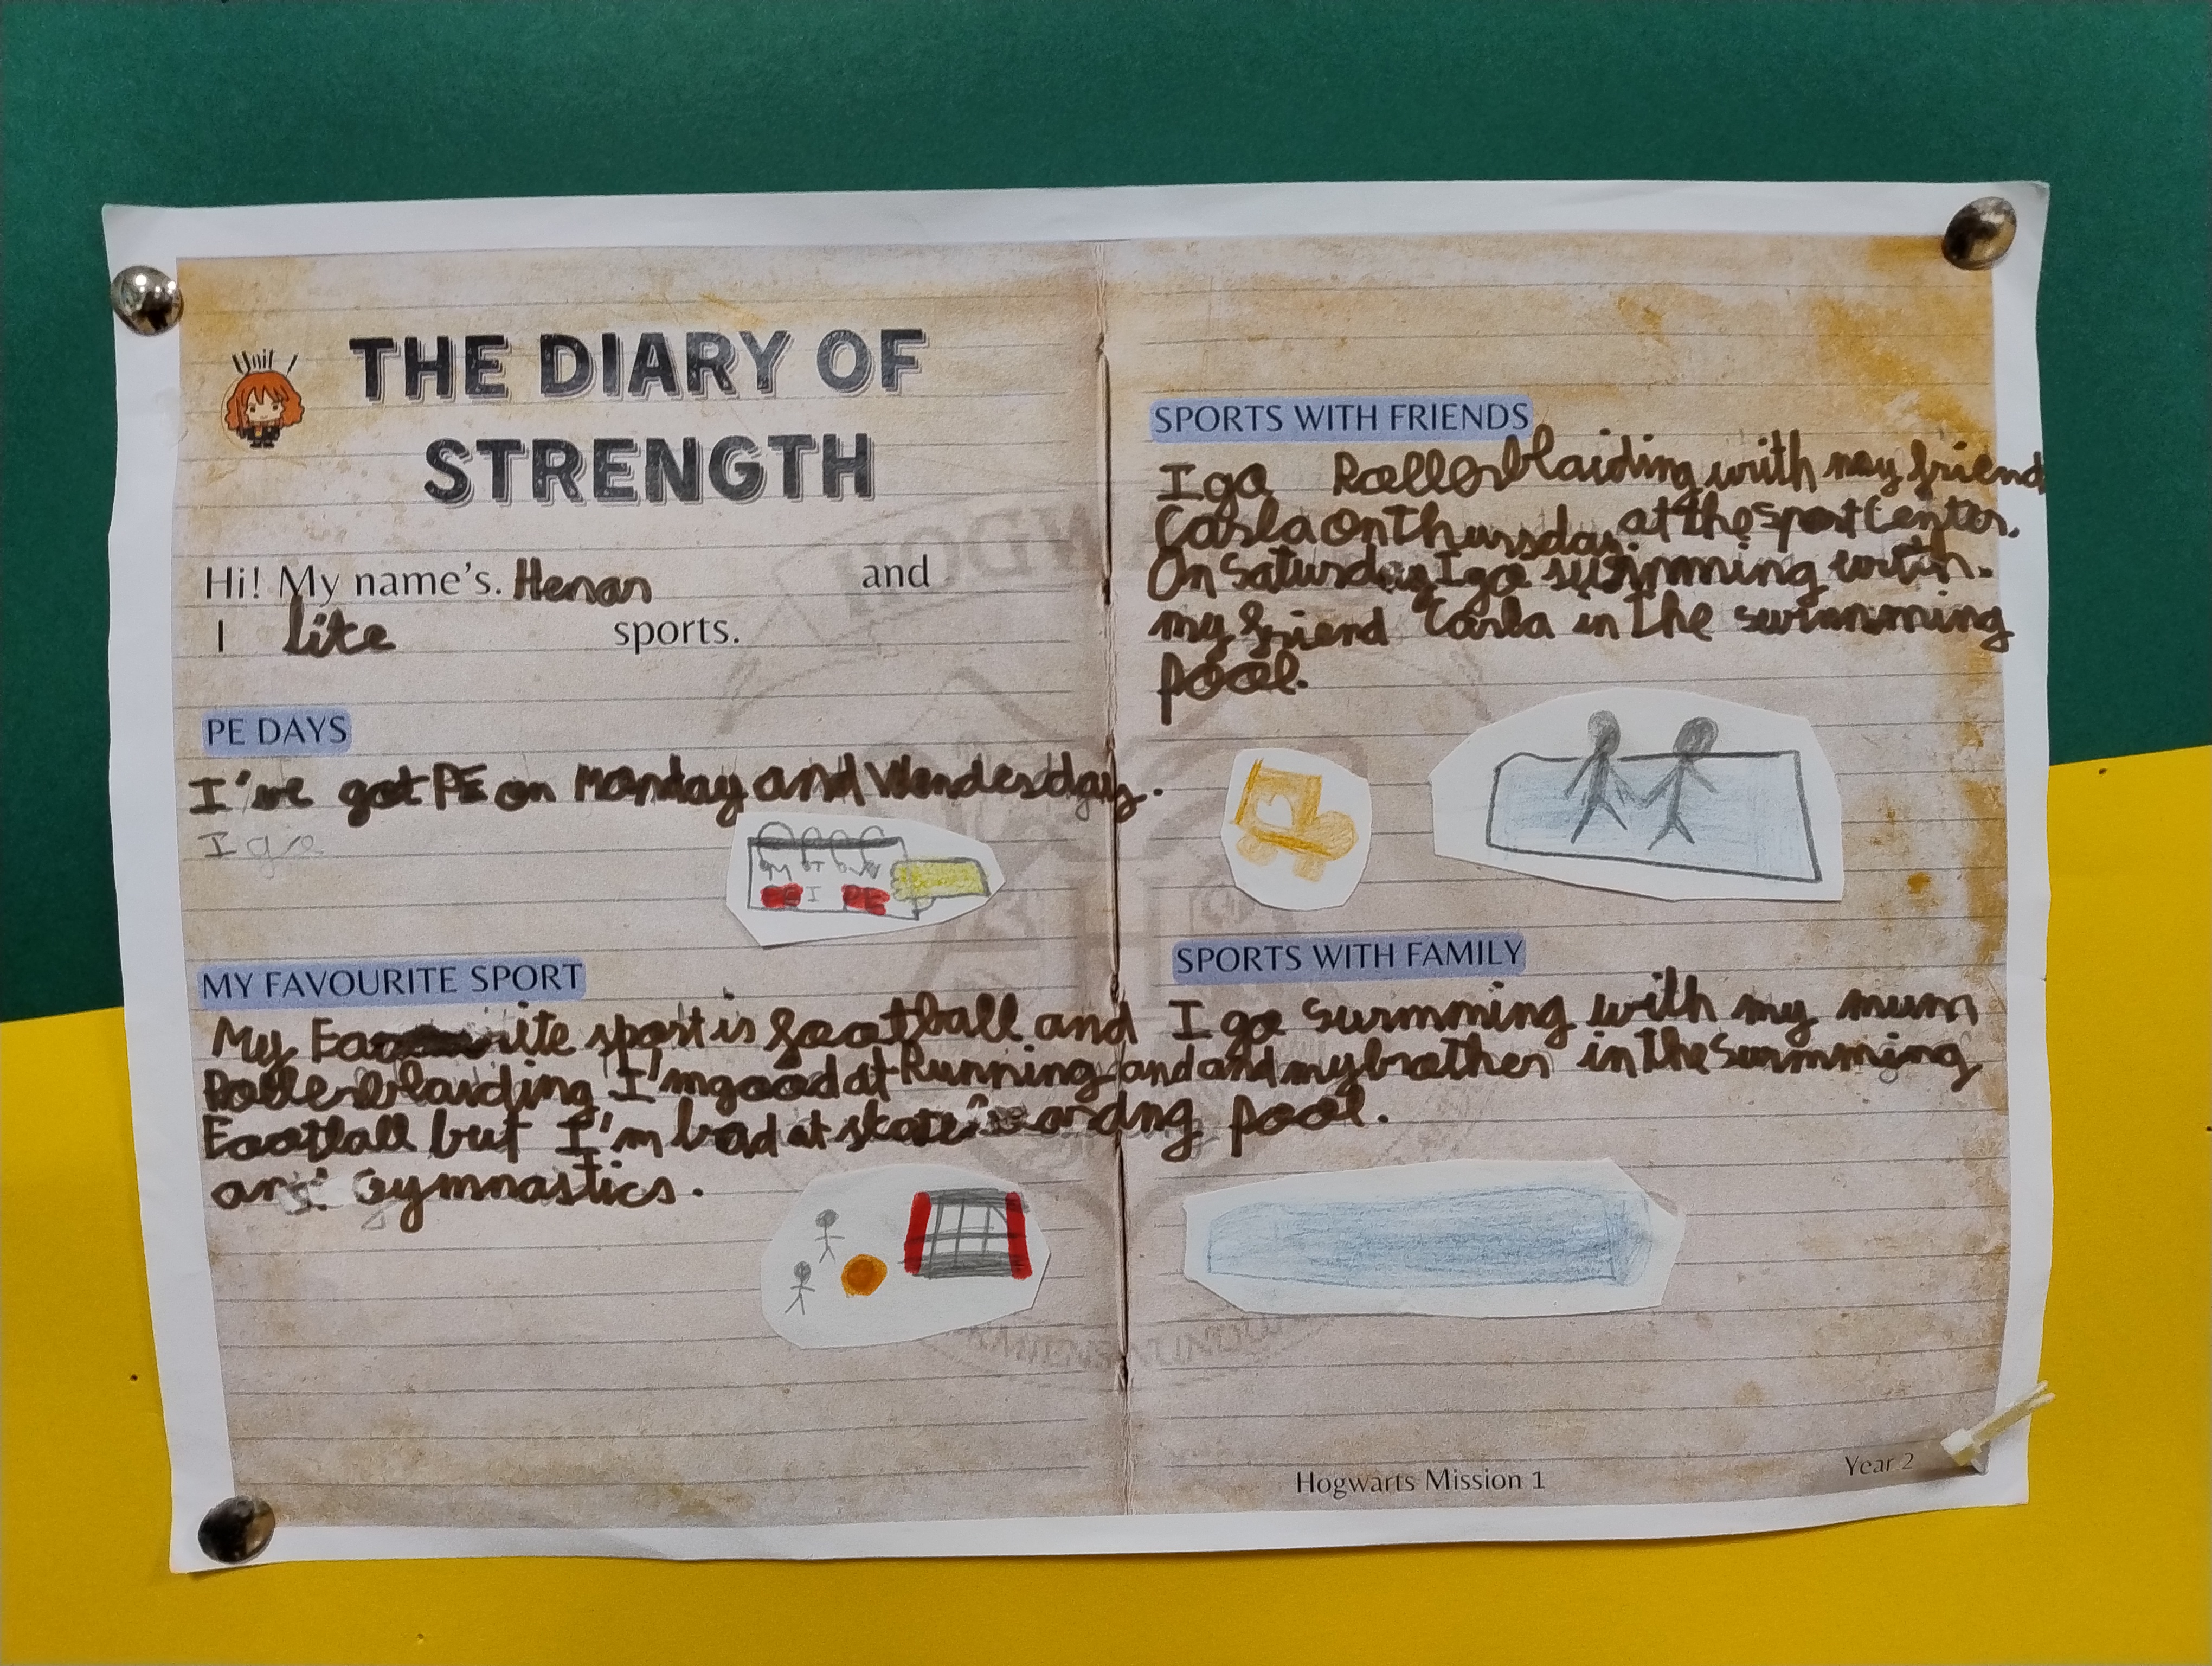 THE DIARY OF
STRENGTH
Hi! My name's. Henar and
I like sports.
PE DAYS
I've got PE on Monday and Wendesday.
I go
MY FAVOURITE SPORT
My Favourite sport is football and
Rollerblaiding I'm good at Running and
Football but I'm bad at skateboardng
and Gymnastics.
SPORTS WITH FRIENDS
I go Rollerblaiding with my friend
Carla on Thursday at the Sport Center.
On Saturday I go swimming with
my friend Carla in the swimming
pool.
SPORTS WITH FAMILY
I go swimming with my mum
and my brother in the swimming
pool.
Hogwarts Mission 1
Year 2